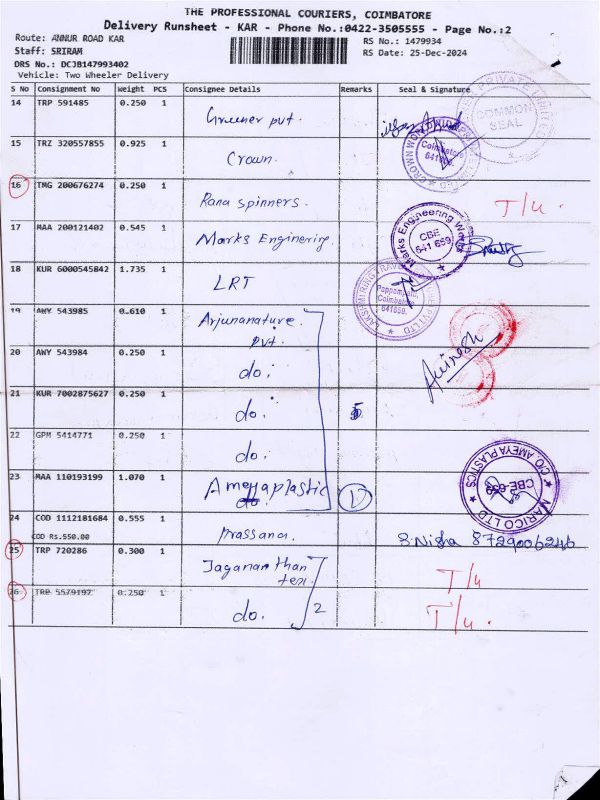 THE PROFESSIONAL COURIERS, COIMBATORE
Delivery Runsheet - KAR - Phone No.:0422-3505555 - Page No.:2
Route: ANNUR ROAD KAR
RS No.: 1479934
Staff: SRIRAM
RS Date: 25-Dec-2024
DRS No.: DCJB147993402
Vehicle: Two Wheeler Delivery
S No Consignment No Weight PCS Consignee Details Remarks Seal & Signature
14 TRP 591485 0.250 1 Greener pvt.
COMMON SEAL
15 TRZ 320557855 0.925 1 Crown.
Coimbatore
16 TMG 200676274 0.250 1 Rana spinners. T/u.
17 MAA 200121402 0.545 1 Marks Enginering.
Marks Engineering Works
CBE
641 659
18 KUR 6000545842 1.735 1 LRT
Coimbatore
641659.
19 AWY 543985 0.610 1 Arjunanature.
pvt.
20 AWY 543984 0.250 1 do.
Avinesh
21 KUR 7002875627 0.250 1 do.
22 GPM 5414771 0.250 1 do.
23 MAA 110193199 1.070 1 Ameyaplastic
do.
C/O AMEYA PLASTICS
CBE-659
MARICO LTD
24 COD 1112181684 0.555 1 prassana. S.Nisha 8729006246
COD Rs.550.00
25 TRP 720286 0.300 1 Jagananthan
tex. T/u
26 TRP 5579192 0.250 1 do. 2 T/u.